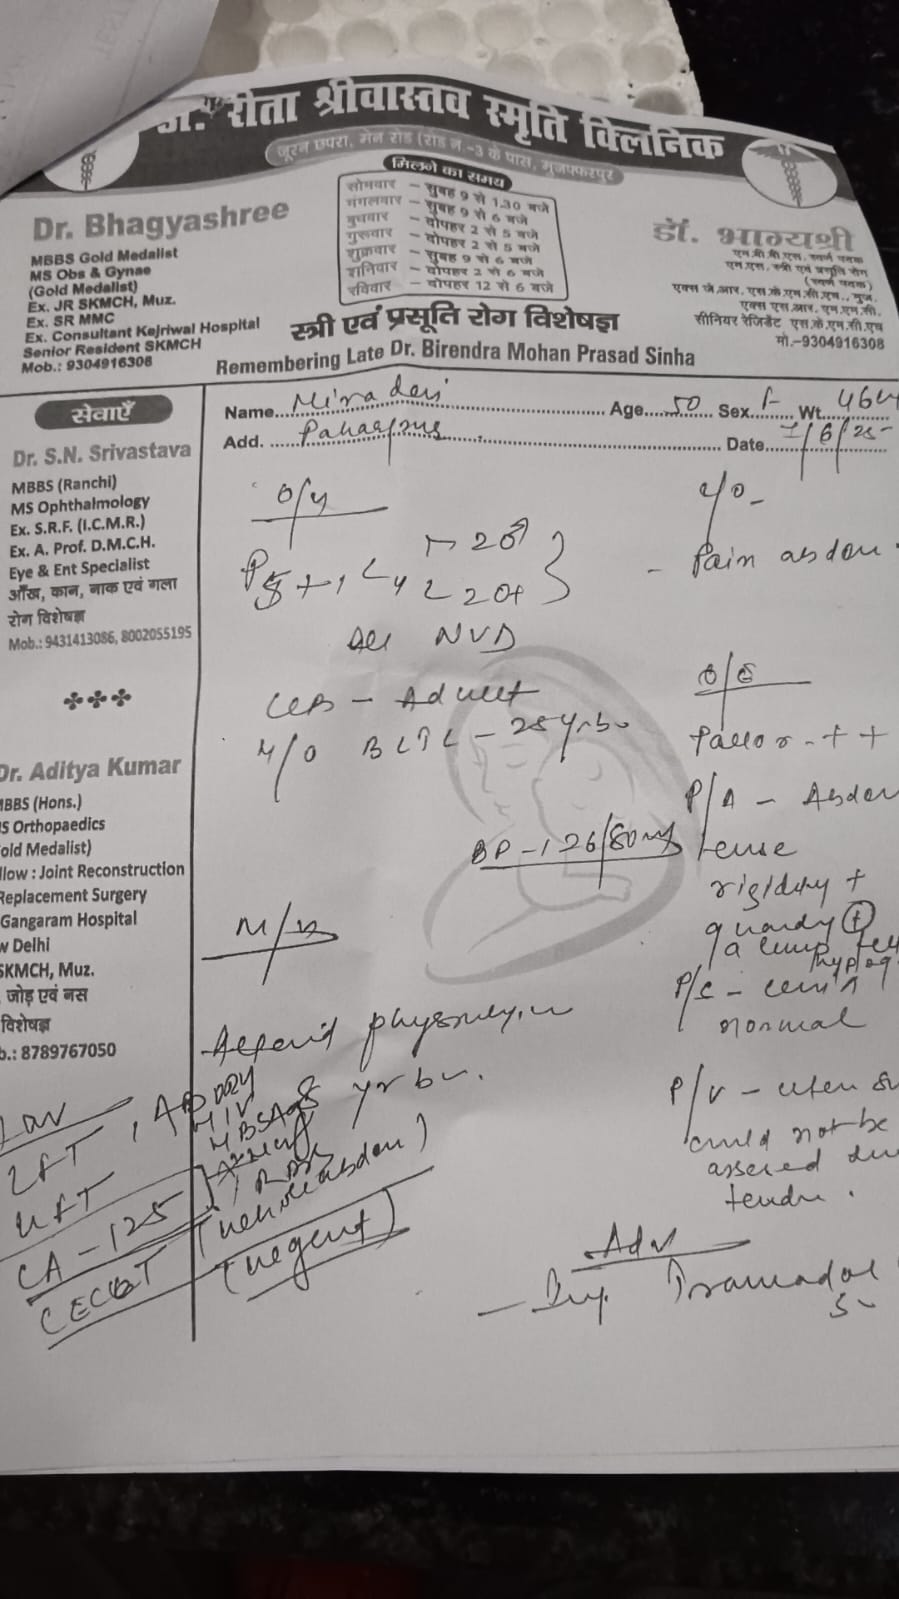 डॉ. रीता श्रीवास्तव स्मृति क्लिनिक
जूरन छपरा, मेन रोड (रोड नं.-3 के पास, मुजफ्फरपुर
मिलने का समय
सोमवार - सुबह 9 से 1.30 बजे
मंगलवार - सुबह 9 से 6 बजे
बुधवार - दोपहर 2 से 5 बजे
गुरूवार - दोपहर 2 से 5 बजे
शुक्रवार - सुबह 9 से 6 बजे
शनिवार - दोपहर 2 से 6 बजे
रविवार - दोपहर 12 से 6 बजे
Dr. Bhagyashree
MBBS Gold Medalist
MS Obs & Gynae
(Gold Medalist)
Ex. JR SKMCH, Muz.
Ex. SR MMC
Ex. Consultant Kejriwal Hospital
Senior Resident SKMCH
Mob.: 9304916308
डॉ. भाग्यश्री
एम.बी.बी.एस. स्वर्ण पदक
एम.एस. स्त्री एवं प्रसूति रोग
(स्वर्ण पदक)
एक्स जे.आर. एस.के.एम.सी.एच., मुज.
एक्स एस.आर. एम.एम.सी.
सीनियर रेजिडेंट एस.के.एम.सी.एच
मो.-9304916308
स्त्री एवं प्रसूति रोग विशेषज्ञ
Remembering Late Dr. Birendra Mohan Prasad Sinha
Name... Mira devi Age... 50 Sex. F Wt.
Add. Date... /6/25
सेवाएँ
Dr. S.N. Srivastava
MBBS (Ranchi)
MS Ophthalmology
Ex. S.R.F. (I.C.M.R.)
Ex. A. Prof. D.M.C.H.
Eye & Ent Specialist
आँख, कान, नाक एवं गला
रोग विशेषज्ञ
Mob.: 9431413086, 8002055195
Dr. Aditya Kumar
MBBS (Hons.)
S Orthopaedics
old Medalist)
llow : Joint Reconstruction
Replacement Surgery
Gangaram Hospital
w Delhi
SKMCH, Muz.
जोड़ एवं नस
विशेषज्ञ
b.: 8789767050
O/H
All NVD
LCB - Adult
H/O BLTL - 25 yrs
BP - 126/80
M/H
yr
C/o -
- Pain abdo
O/E
Pallor - ++
P/A - Abdo
tense
rigidity +
P/S -
normal
P/V -
could not be
Adv
- Inj. Tramadol
LFT
KFT
HIV
HBSAg
CA-125
CECT (whole abdo)
(urgent)